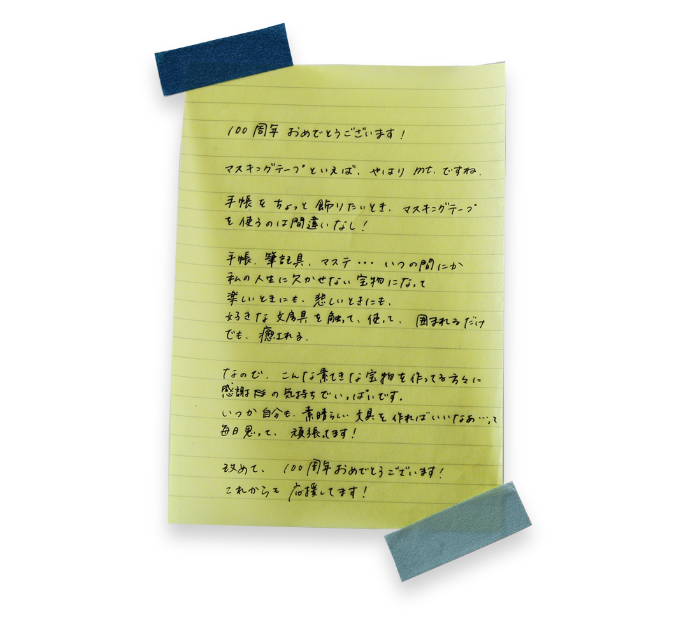 100周年 おめでとうございます!
マスキングテープといえば、やはり mt. ですね.
手帳を ちょっと 飾りたいとき、マスキングテープ
を 使うのは間違いなし!
手帳、筆記具、マステ・・・いつの間にか
私の人生に欠かせない宝物になって
楽しいときにも、悲しいときにも、
好きな文房具を触って、使って、囲まれるだけ
でも、癒される.
なので、こんな素てきな宝物を作ってる方々に
感謝の気持ちでいっぱいです.
いつか自分も、素晴らしい文具を作ればいいなあ…って
毎日思って、頑張ってます!
改めて、100周年おめでとうございます!
これからも 応援してます!